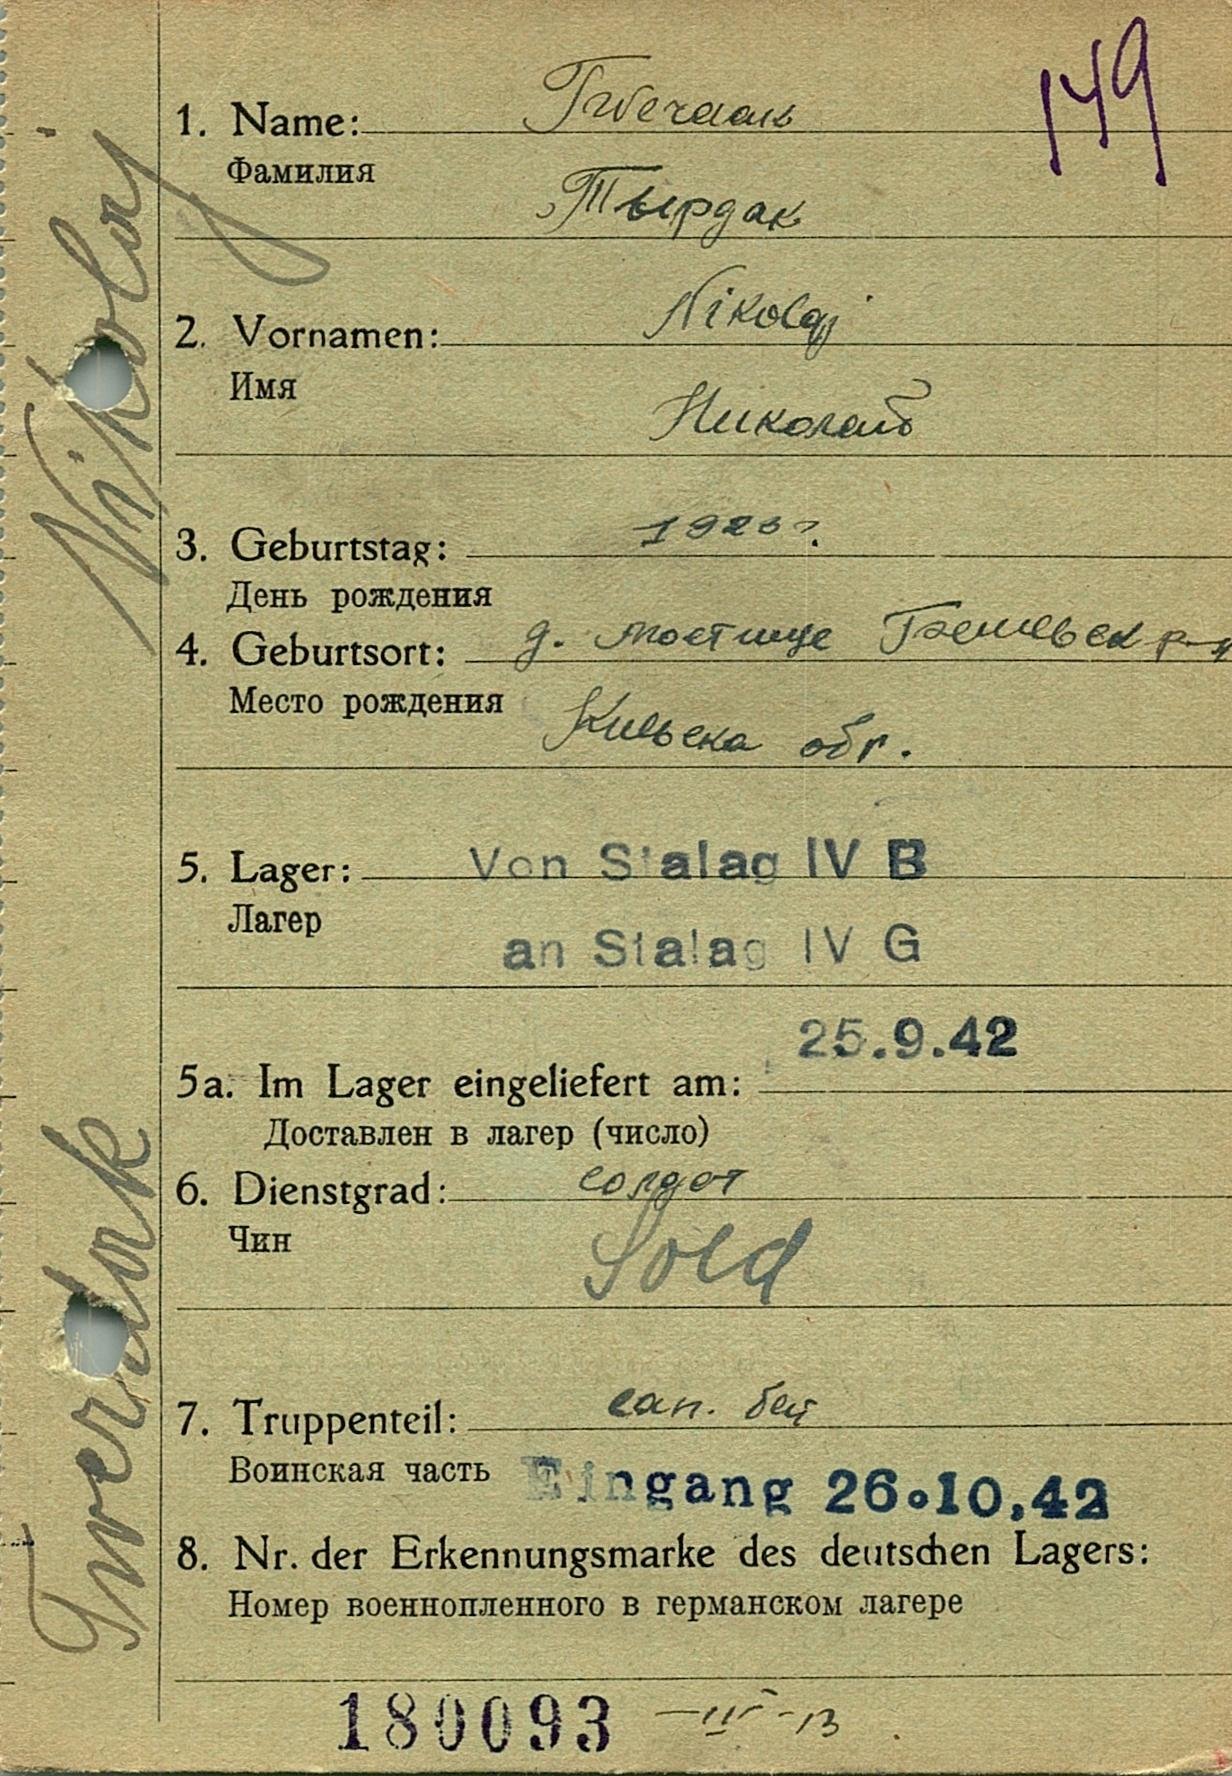 149
1. Name:
Фамилия
Тырдак
2. Vornamen: Nikolaj
Имя
Николай
3. Geburtstag: 1923 г.
День рождения
4. Geburtsort: д. Мостище
Место рождения
обл.
5. Lager: Von Stalag IV B
Лагер
an Stalag IV G
25.9.42
5a. Im Lager eingeliefert am:
Доставлен в лагер (число)
6. Dienstgrad: солдат
Чин
Sold
7. Truppenteil: сап. бат
Воинская часть
Eingang 26.10.42
8. Nr. der Erkennungsmarke des deutschen Lagers:
Номер военнопленного в германском лагере
180093
Twerdak Nikolaj